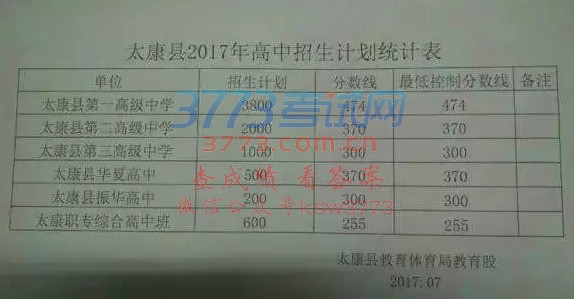 太康县2017年高中招生计划统计表
单位 招生计划 分数线 最低控制分数线 备注
太康县第一高级中学 3800 474 474
太康县第二高级中学 2000 370 370
太康县第三高级中学 1000 300 300
太康县华夏高中 500 370 370
太康县振华高中 200 300 300
太康职专综合高中班 600 255 255
太康县教育体育局教育股
2017.07
3773考试网
www.3773.com.cn
查成绩 看答案
微信公众号ksw3773